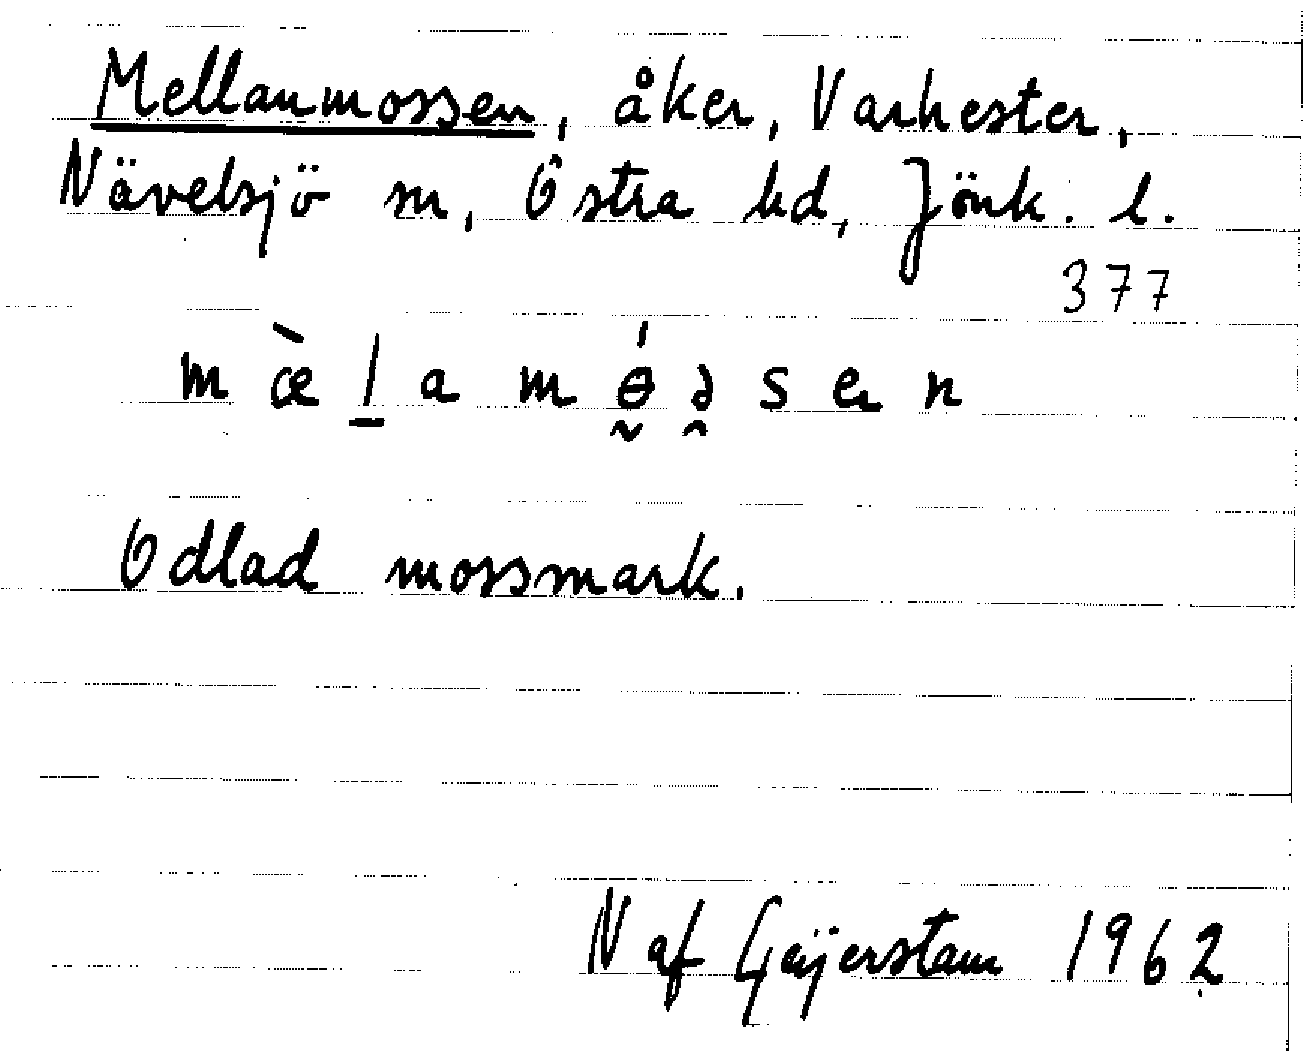 Mellanmossen, åker, Varhester,
Nävelsjö sn, Östra hd, Jönk. l.
377
m æ̀ l̲ a m ɵ̰́ ə̯ s e n
Odlad mossmark.
N af Geijerstam 1962